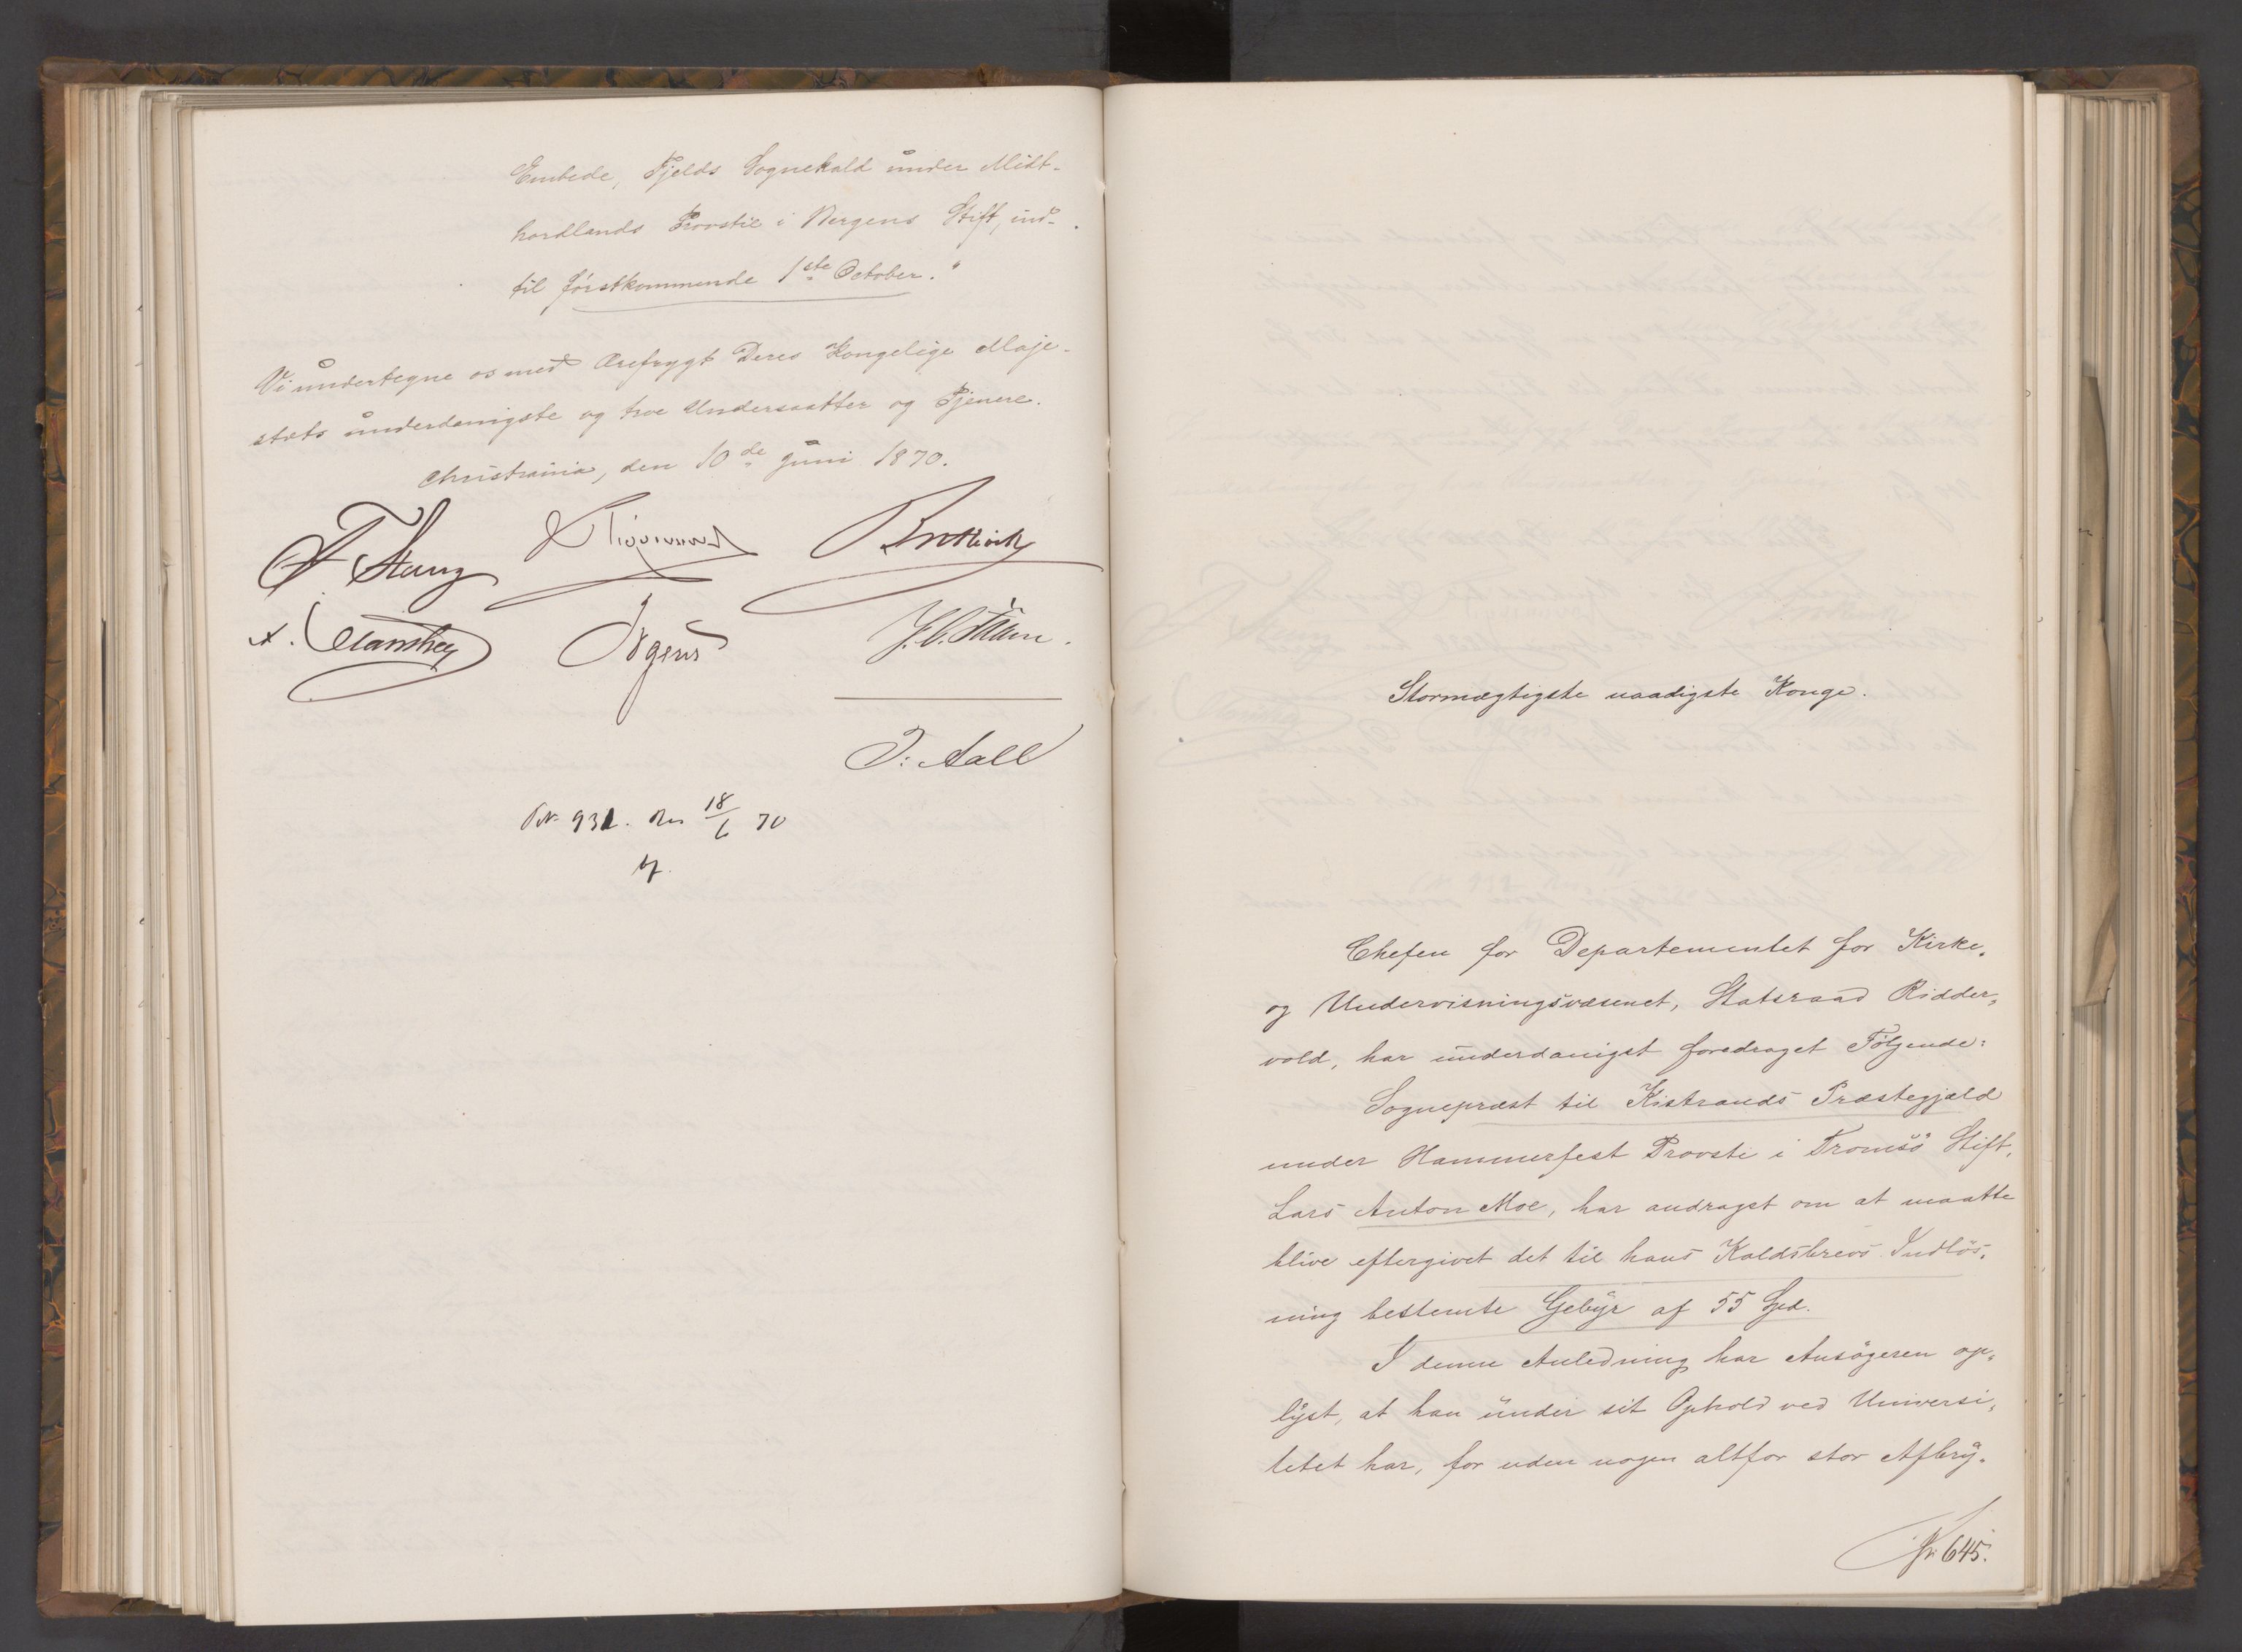 Embede, Fjelds Sognekald under Midt-
hordlands Provsti i Bergens Stift, ind-
til förstkommende 1ste October."
Vi undertegne os med Ærefrygt Deres Kongelige Maje-
stæts underdanigste og troe Undersaatter og Tjenere.
Christiania, den 10de Juni 1870.
F Stang
A. Manthey Irgens
J. Aall
No 931. den 18/6 70
Stormægtigste naadigste Konge.
Chefen for Departementet for Kirke-
og Undervisningsvæsenet, Statsraad Ridder-
vold, har underdanigst foredraget Fölgende:
Sognepræst til Kistrands Præstegjæld
under Hammerfest Provsti i Tromsö Stift,
Lars Anton Moe, har andraget om at maatte
blive eftergivet det til hans Kaldsbrevs Indlös-
ning bestemte Gebyr af 55 Spd.
I denne Anledning har Ansögeren op-
lyst, at han under sit Ophold ved Universi-
tetet har, for uden nogen altfor stor Afbry-
No 645.